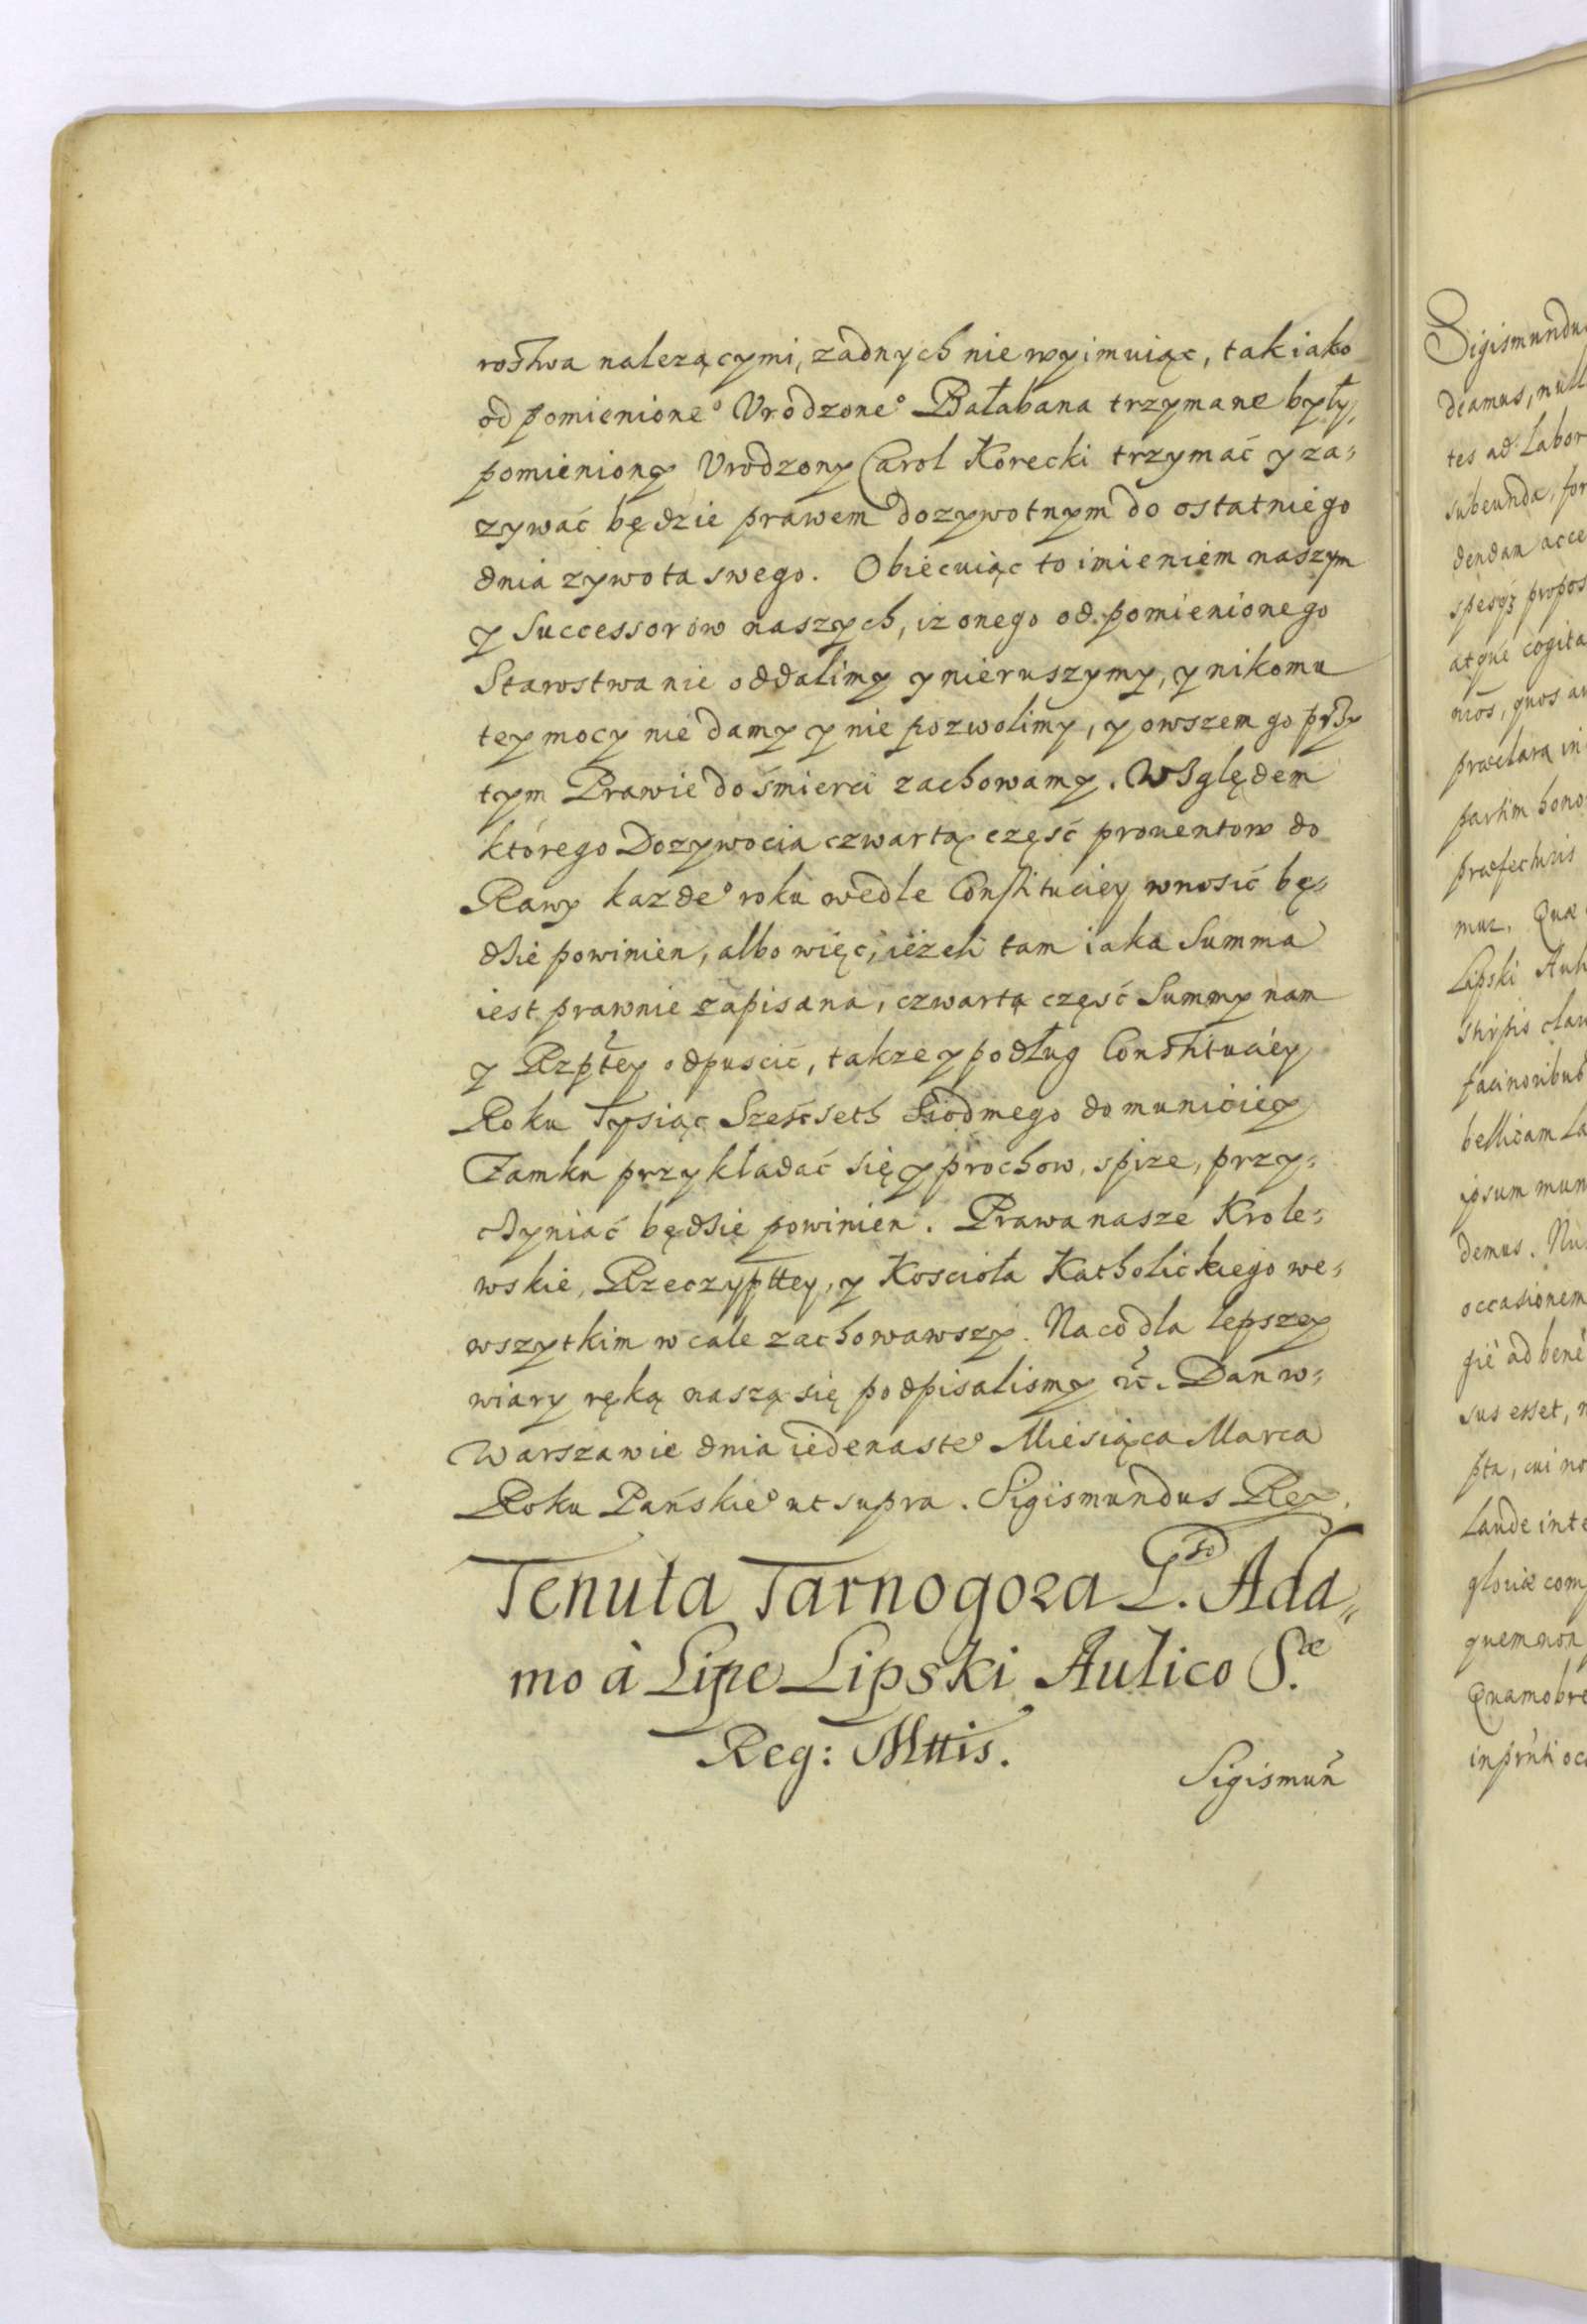 rostwa nalezącymi, zadnych nie wyimuiąc, tak iako
od pomienione° Vrodzone° Bałabana trzymane były,
pomieniony Vrodzony Carol Korecki trzymać y za-
zywać będzie prawem dozywotnym do ostatniego
dnia zywota swego. Obiecuiąc to imieniem naszym
y Successorow naszych, iz onego od pomienionego
Starostwa nie oddalimy y nieruszymy, y nikomu
tey mocy nie damy y nie pozwolimy, y owszem go przy
tym Prawie do śmierci zachowamy. Względem
którego Dozywocia czwartą część prouentow do
Rawy kazde° roku wedle Constituciey wnosić bę-
dzie powinien, albo więc, ieżeli tam iaka Summa
iest prawnie zapisana, czwartą część Summy nam
y Rzptey odpuscić, takze y podług Constituciey
Roku Tysiąc Szescseth Siodmego do municiey
Zamku przykładać się y prochow, spize, przy-
czyniać będzie powinien. Prawa nasze Krole-
wskie, Rzeczypttey, y Koscioła Katholickiego we-
wszytkim w cale zachowawszy. Na co dla lepszey
wiary ręką naszą się podpisalismy etc. Dan w-
Warszawie dnia iedenaste° Miesiąca Marca
Roku Pańskie° ut supra. Sigismundus Rex.
Tenuta Tarnogora G.so Ada-
mo à Lipe Lipski Aulico S.ae
Reg: Mttis.
Sigismuñ
Sigismundu
deamus, null
tes ad labor
subeunda, for
dendam acce
spesq3 propos
atque cogita
nios, quos au
præclara in
partim hono
præfecturis
mur. Quæ
Lipski Auli
stirpis clar
facinoribus
bellicam La
ipsum mun
demus. Nu
occasionem
gie ad bene
sus esset, n
pta, cui no
Laude inte
gloriæ com
quem non
Quamobre
inprnti occ